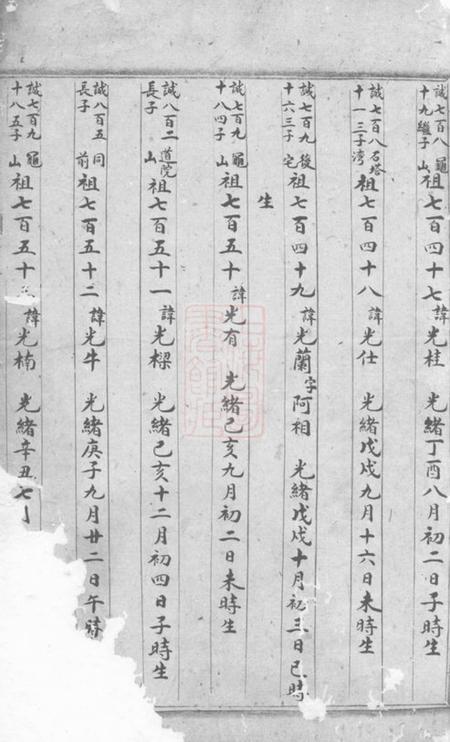 誠七百八十九繼子 黽山 祖七百四十七 諱光桂 光緒丁酉八月初二日子時生
誠七百八十一三子 石塔湾 祖七百四十八 諱光仕 光緒戊戌九月十六日未時生
誠七百九十六三子 後宅 祖七百四十九 諱光蘭字阿相 光緒戊戌十月初三日巳時
生
誠七百九十八四子 黽山 祖七百五十 諱光有 光緒己亥九月初二日未時生
誠八百二長子 道院山 祖七百五十一 諱光樑 光緒己亥十二月初四日子時生
誠八百五長子 同前 祖七百五十二 諱光牛 光緒庚子九月廿二日午時
誠七百九十八五子 黽山 祖七百五十 諱光楠 光緒辛丑七